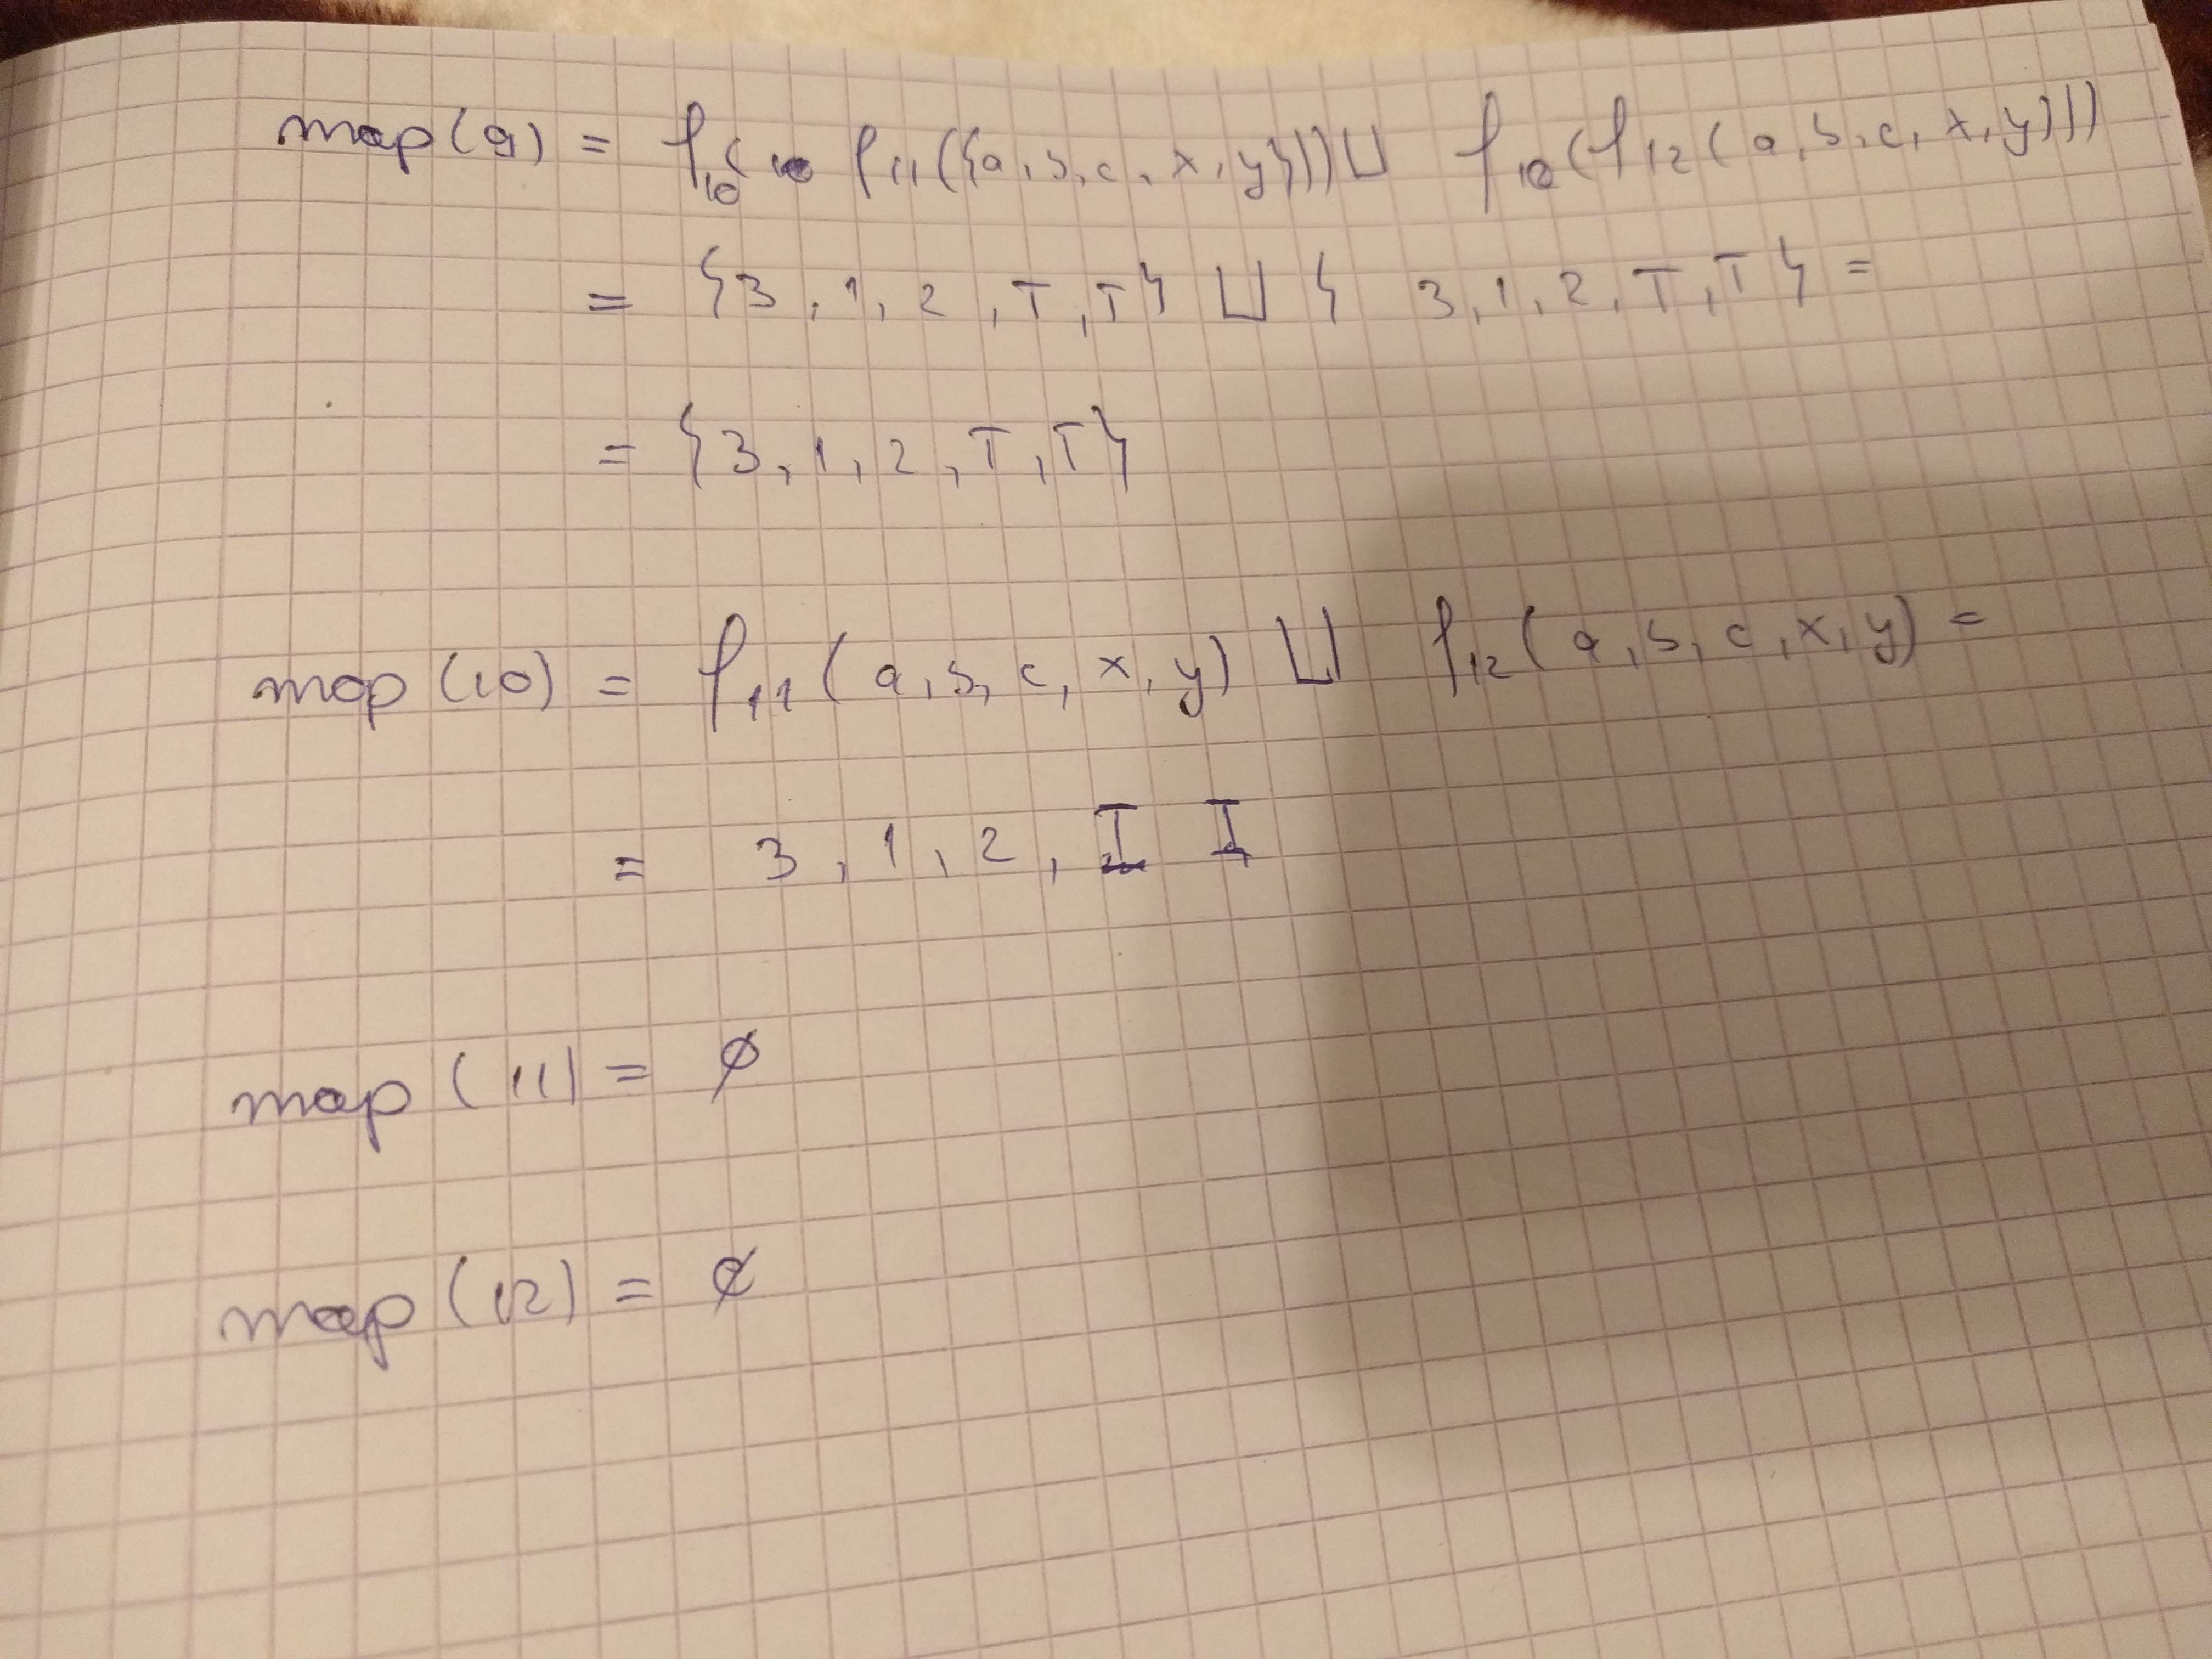 map(9) = f₁₀( f₁₁({a, b, c, x, y})) ⊔ f₁₀(f₁₂(a, b, c, x, y)))
= {3, 1, 2, T, T} ⊔ { 3, 1, 2, T, T } =
= {3, 1, 2, T, T}
map (10) = f₁₁ (a, b, c, x, y) ⊔ f₁₂ (a, b, c, x, y) =
= 3, 1, 2, I I
map (11) = ∅
map (12) = ∅